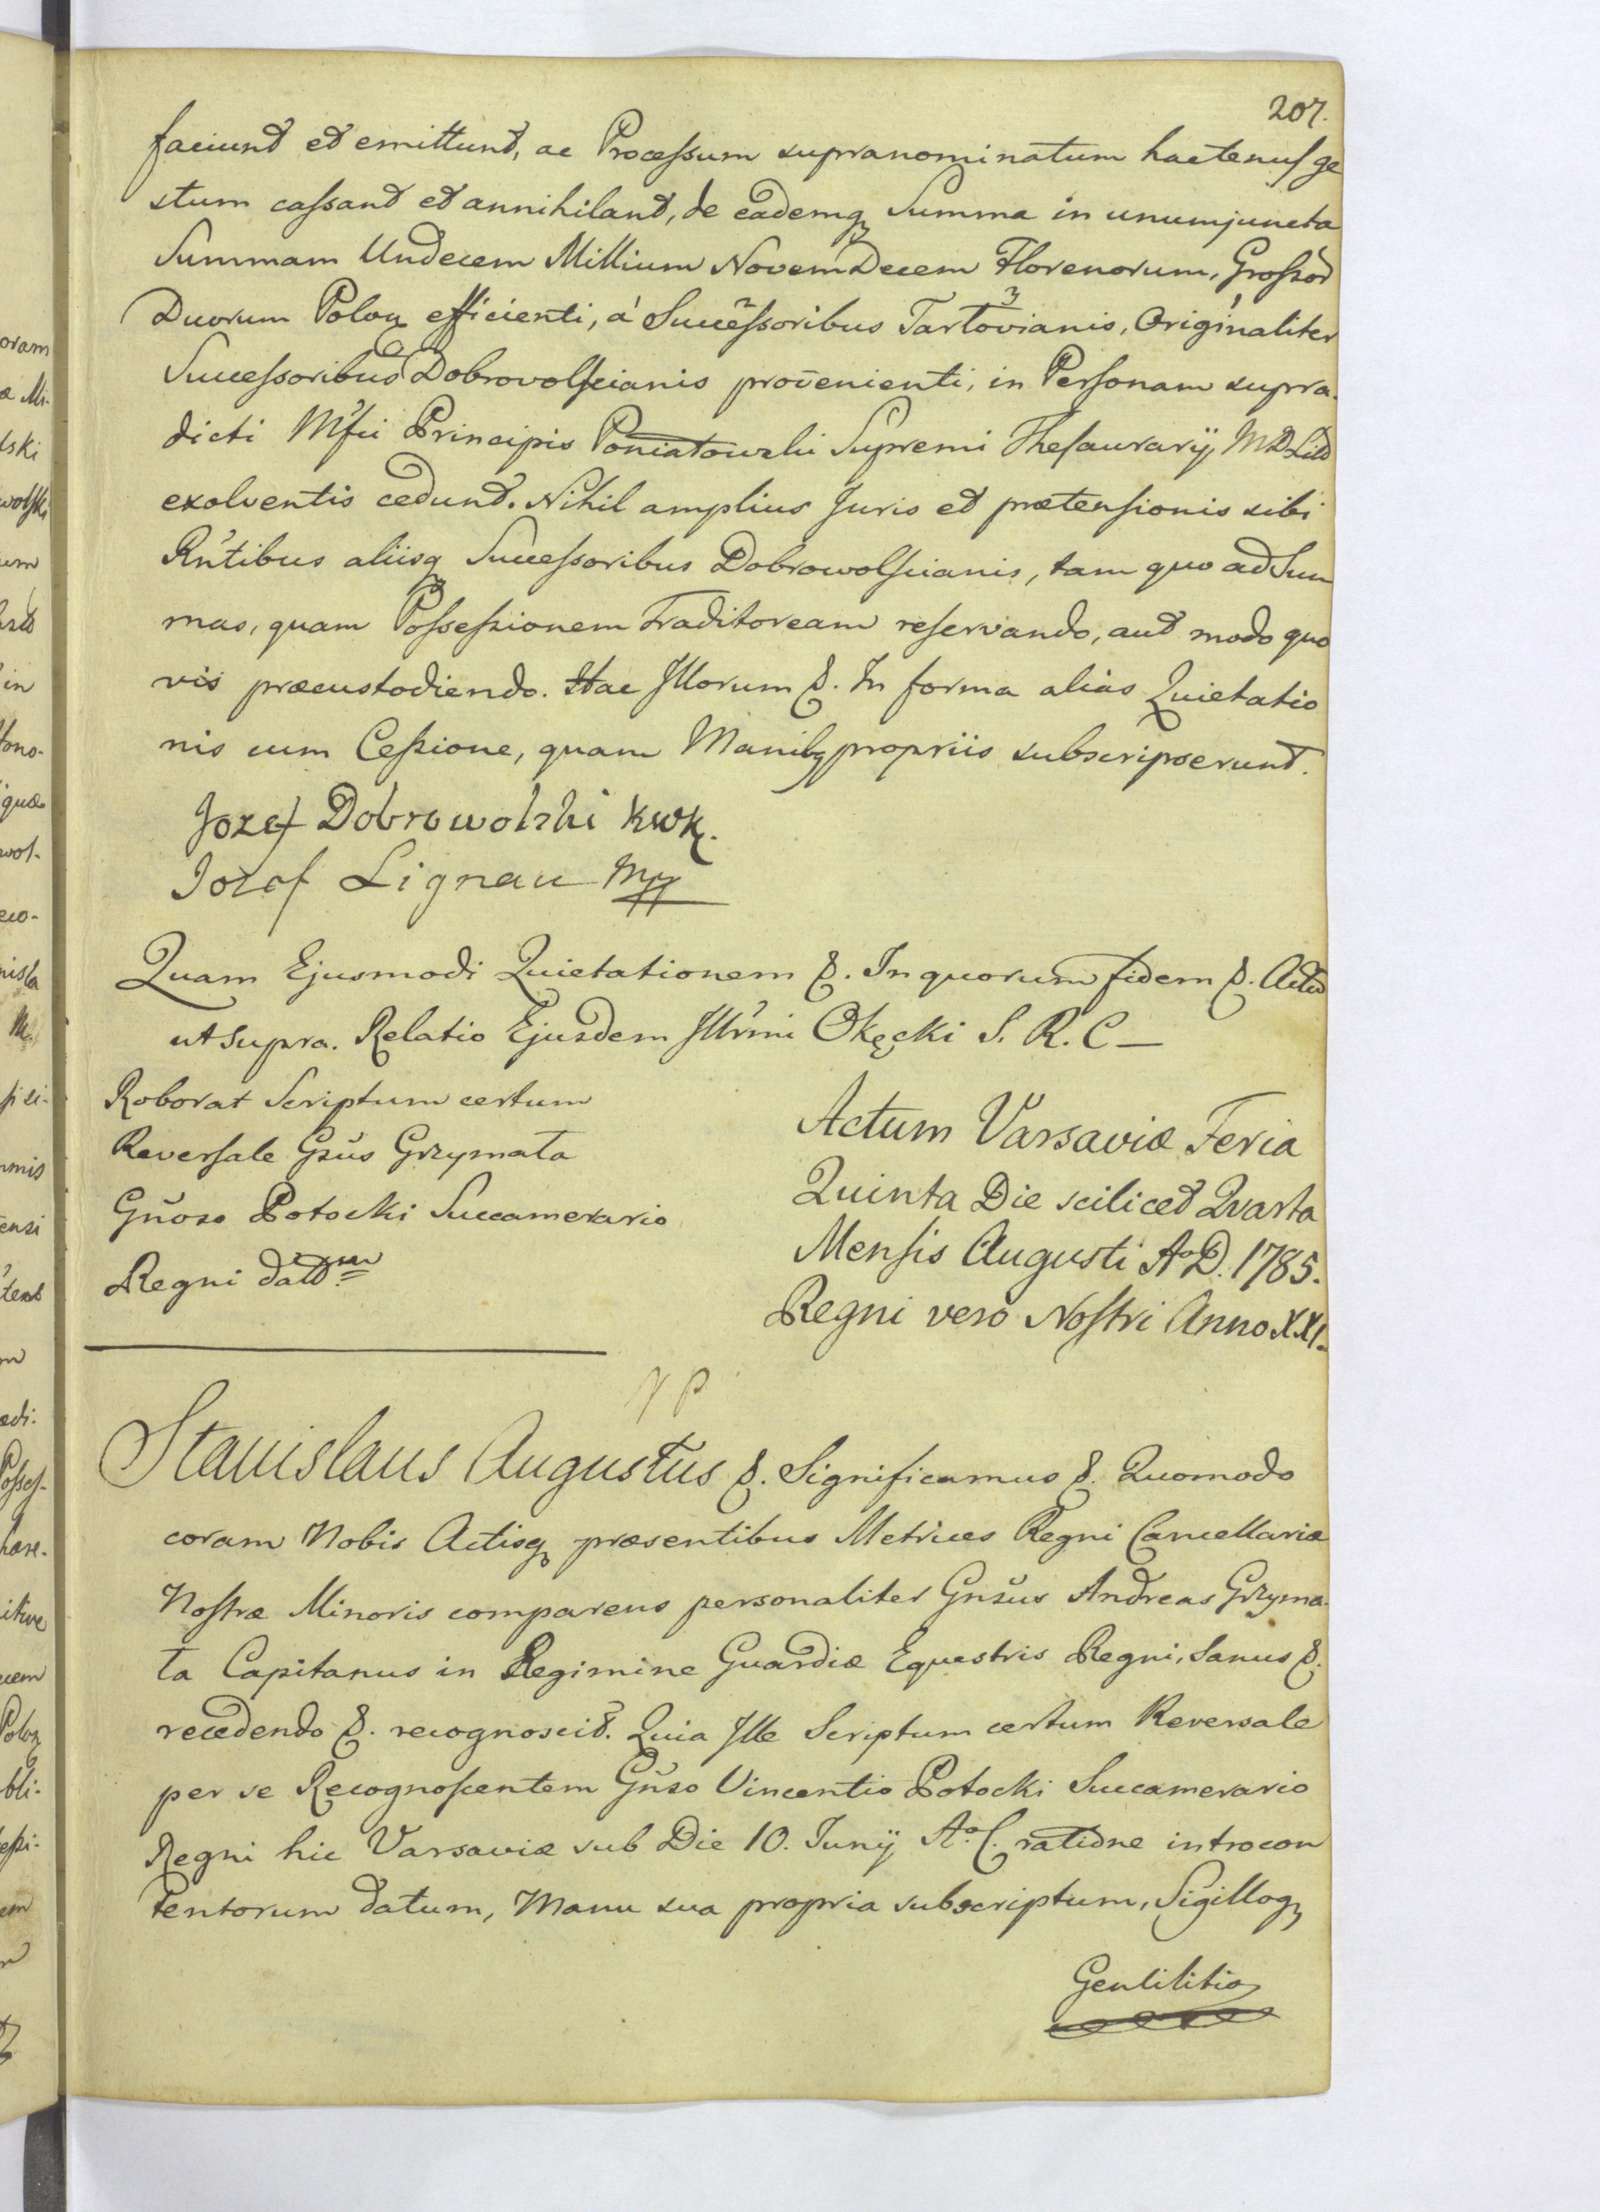 207.
faciunt et emittunt, ac Processum supranominatum hactenus ge
stum cassant et annihilant, de eademq Summa in unum juncta
Summam Undecem Millium Novem Decem Florenorum, Grossor
Duorum Polon efficienti, á Successoribus Tartovianis, Originaliter
Successoribus Dobrovolscianis provenienti, in Personam supra-
dicti Mfici Principis Poniatowski Supremi Thesaurarij MDLitt
exolventis cedunt. Nihil amplius Juris et prætensionis sibi
Rntibus aliisq Successoribus Dobrowolscianis, tam quo ad Sum
mas, quam Possessionem Traditoream reservando, aut modo quo
vis præcustodiendo. Hac Illorum &. In forma alias Quietatio
nis cum Cessione, quam Manibq propriis subscripserunt.
Jozef Dobrowolski kwk.
Jozef Lignau mp
Quam Ejusmodi Quietationem &. In quorum fidem &. Actu
ut supra. Relatio Ejusdem Illrmi Okęcki S. R. C—
Roborat Scriptum certum
Reversale Gsus Grzymała
Gnoso Potocki Succamerario
Regni datum
Actum Varsaviæ Feria
Quinta Die scilicet Qvarta
Mensis Augusti Ao D. 1785.
Regni vero Nostri Anno XXI.
Stanislaus Augustus &. Significamus &. Quomodo
coram Nobis Actisq præsentibus Metrices Regni Cancellariæ
Nostræ Minoris comparens personaliter Gnsus Andreas Grzyma-
ła Capitanus in Regimine Guardiæ Equestris Regni, Sanus &.
recedendo &. recognoscit. Quia Ille Scriptum certum Reversale
per se Recognoscentem Gnso Vincentio Potocki Succamerario
Regni hic Varsaviæ sub Die 10. Junij Ao C. ratione introcon
tentorum datum, Manu sua propria subscriptum, Sigilloq
Gentilitio